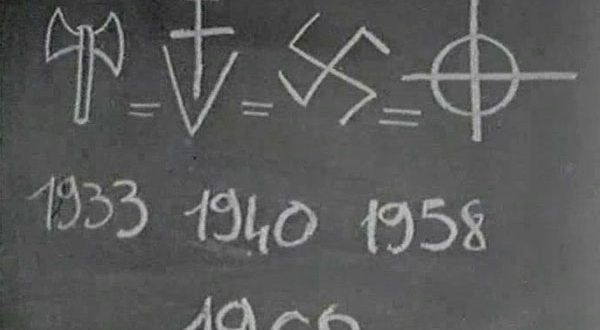 = = =
1933 1940 1958